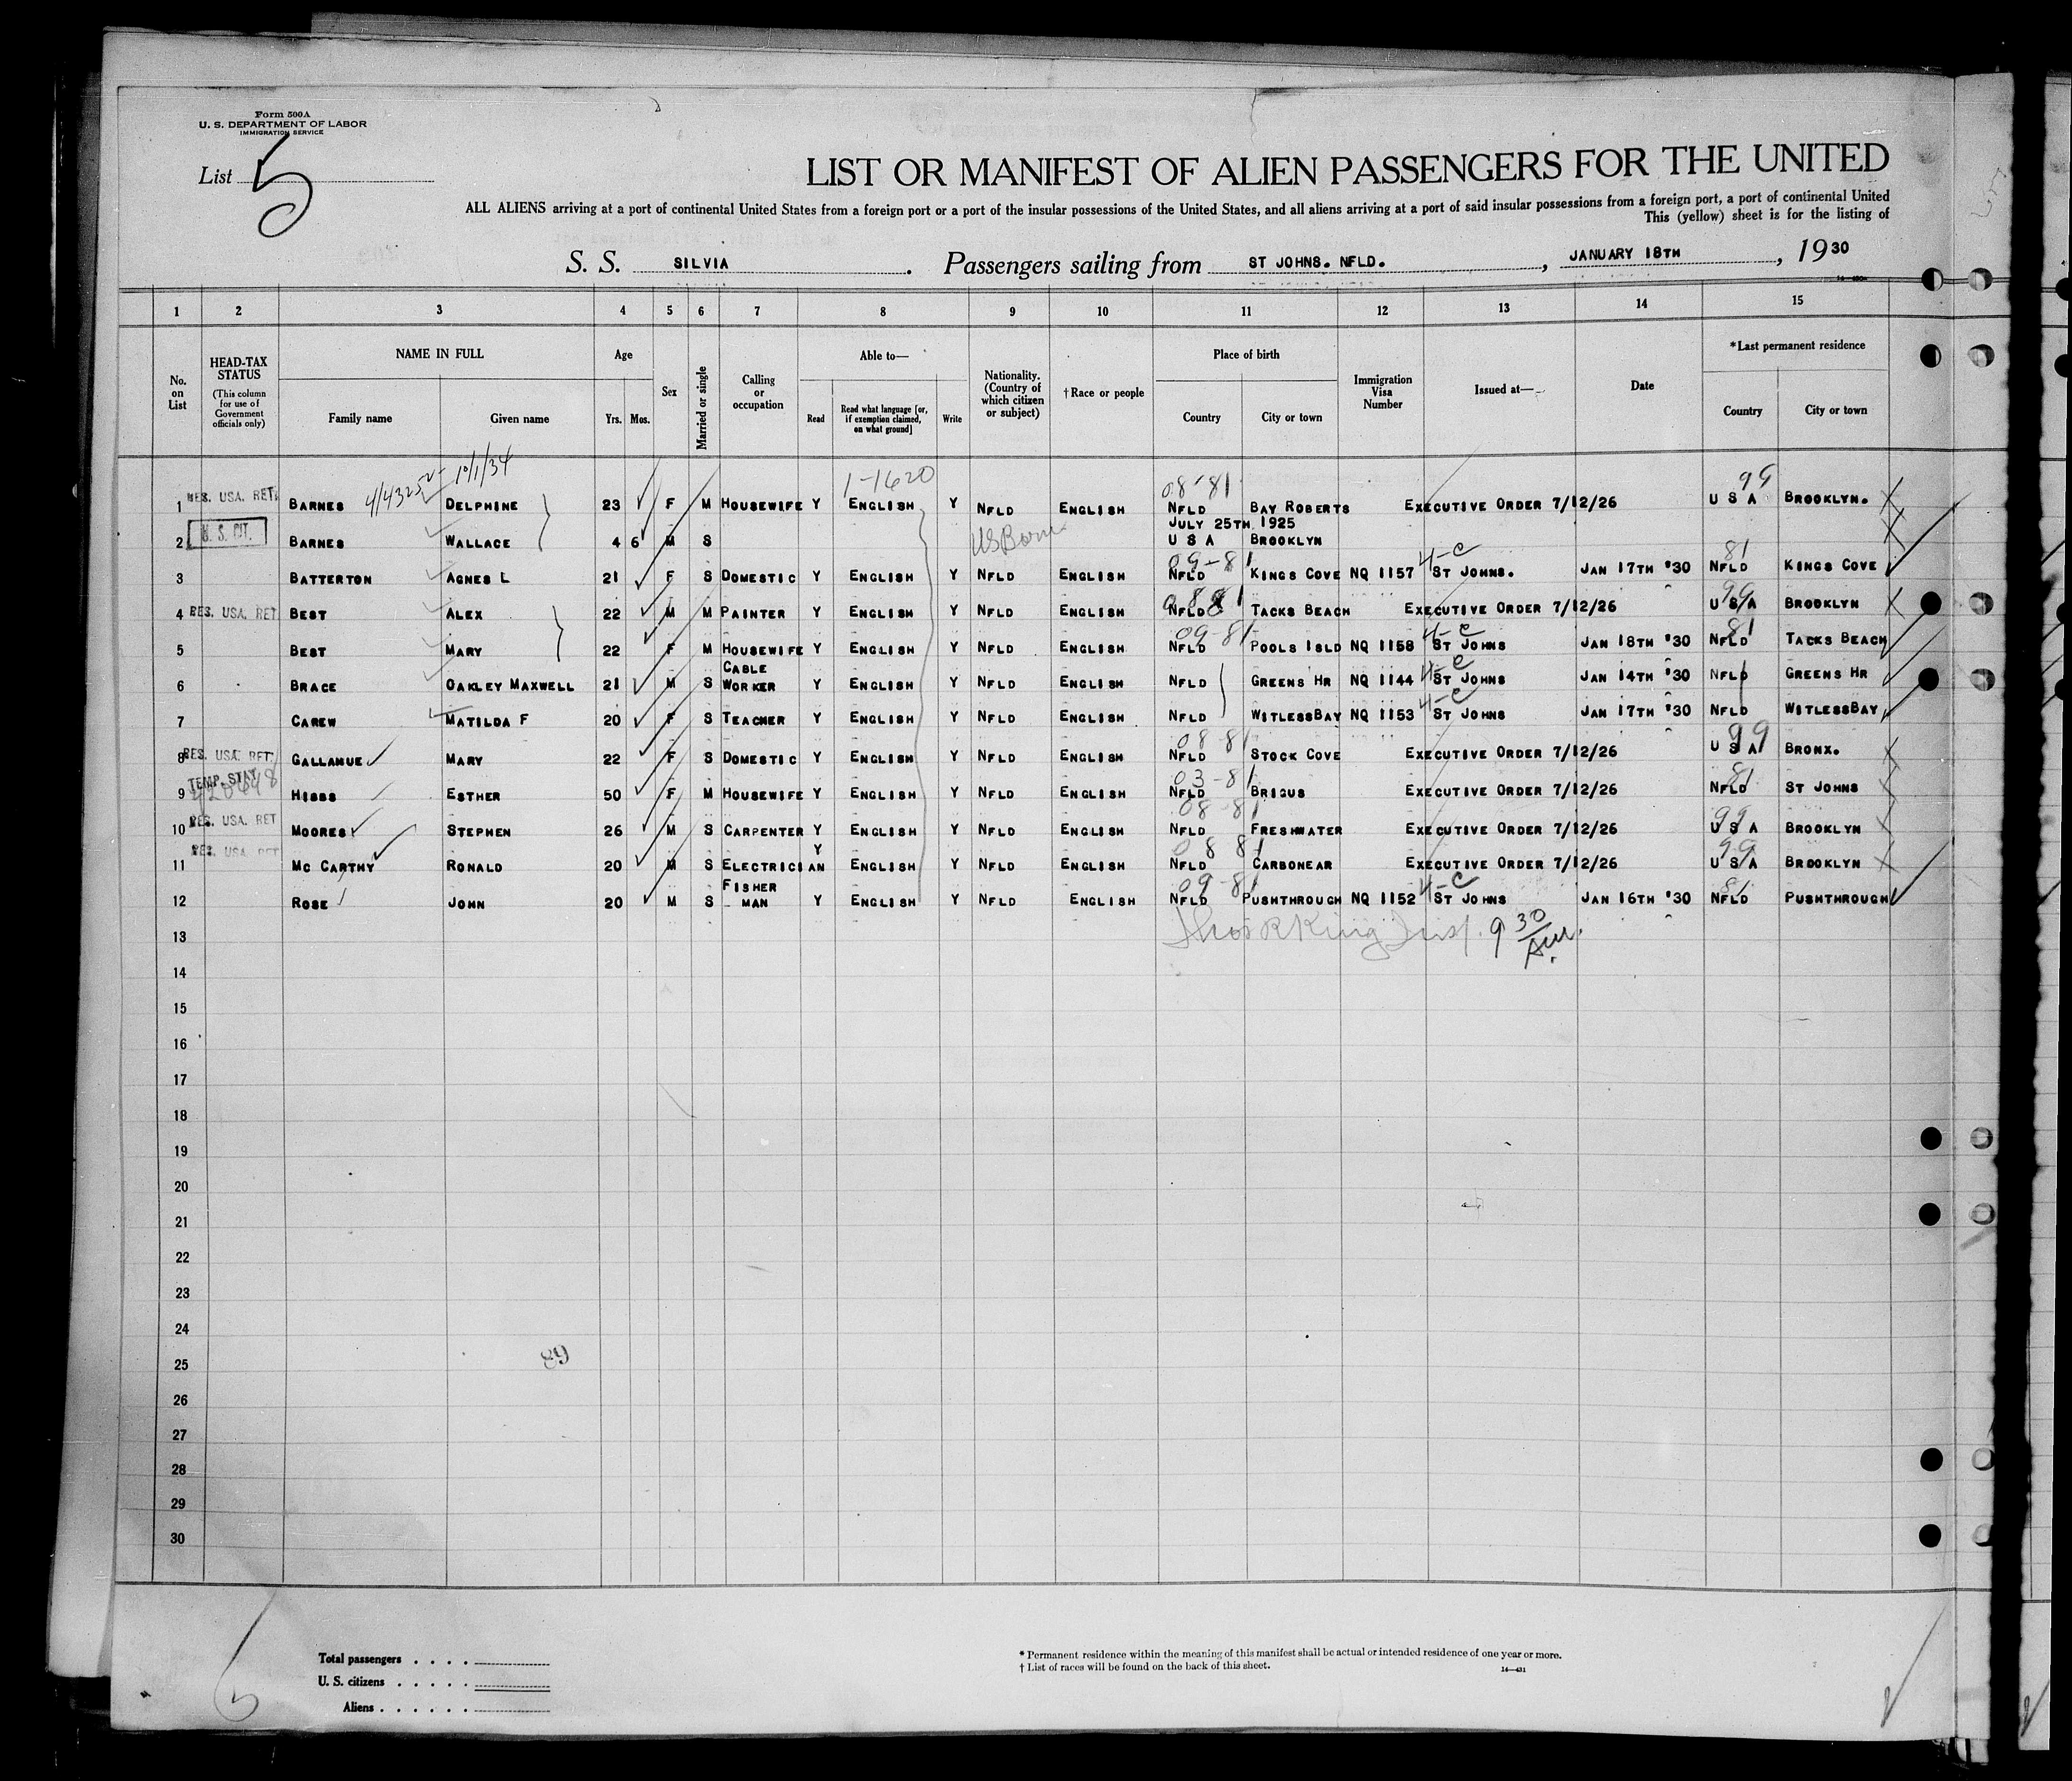 Form 500A
U. S. DEPARTMENT OF LABOR
IMMIGRATION SERVICE
List 5
LIST OR MANIFEST OF ALIEN PASSENGERS FOR THE UNITED
ALL ALIENS arriving at a port of continental United States from a foreign port or a port of the insular possessions of the United States, and all aliens arriving at a port of said insular possessions from a foreign port, a port of continental United
This (yellow) sheet is for the listing of
S. S. SILVIA. Passengers sailing from ST JOHNS. NFLD., JANUARY 18TH, 1930
1 2 3 4 5 6 7 8 9 10 11 12 13 14 15
No. on List HEAD-TAX STATUS (This column for use of Government officials only) NAME IN FULL Family name Given name Age Yrs. Mos. Sex Married or single Calling or occupation Able to— Read Read what language [or, if exemption claimed, on what ground] Write Nationality. (Country of which citizen or subject) †Race or people Place of birth Country City or town Immigration Visa Number Issued at— Date *Last permanent residence Country City or town
10/1/34
1-1620 08-81 99
1 RES. USA. RET. BARNES DELPHINE 23 F M HOUSEWIFE Y ENGLISH Y NFLD ENGLISH NFLD BAY ROBERTS EXECUTIVE ORDER 7/12/26 U S A BROOKLYN.
JULY 25TH 1925
2 U. S. CIT. BARNES WALLACE 4 6 M S US Born U S A BROOKLYN
09-81 4-C 81
3 BATTERTON AGNES L 21 F S DOMESTIC Y ENGLISH Y NFLD ENGLISH NFLD KINGS COVE NQ 1157 ST JOHNS. JAN 17TH '30 NFLD KINGS COVE
99
4 RES. USA. RET. BEST ALEX 22 M M PAINTER Y ENGLISH Y NFLD ENGLISH NFLD TACKS BEACH EXECUTIVE ORDER 7/12/26 U S A BROOKLYN
09-81 4-C 81
5 BEST MARY 22 F M HOUSEWIFE Y ENGLISH Y NFLD ENGLISH NFLD POOLS ISLD NQ 1158 ST JOHNS JAN 18TH '30 NFLD TACKS BEACH
CABLE 4-C
6 BRACE OAKLEY MAXWELL 21 M S WORKER Y ENGLISH Y NFLD ENGLISH NFLD GREENS HR NQ 1144 ST JOHNS JAN 14TH '30 NFLD GREENS HR
4-C
7 CAREW MATILDA F 20 F S TEACHER Y ENGLISH Y NFLD ENGLISH NFLD WITLESSBAY NQ 1153 ST JOHNS JAN 17TH '30 NFLD WITLESSBAY
08 81 99
8 RES. USA. RET. GALLAHUE MARY 22 F S DOMESTIC Y ENGLISH Y NFLD ENGLISH NFLD STOCK COVE EXECUTIVE ORDER 7/12/26 U S A BRONX.
TEMP. STAY 03-81 81
9 HIBBS ESTHER 50 F M HOUSEWIFE Y ENGLISH Y NFLD ENGLISH NFLD BRIGUS EXECUTIVE ORDER 7/12/26 NFLD ST JOHNS
08-81 99
10 RES. USA. RET MOORES STEPHEN 26 M S CARPENTER Y ENGLISH Y NFLD ENGLISH NFLD FRESHWATER EXECUTIVE ORDER 7/12/26 U S A BROOKLYN
08 81 99
11 RES. USA. RET MC CARTHY RONALD 20 M S ELECTRICIAN Y ENGLISH Y NFLD ENGLISH NFLD CARBONEAR EXECUTIVE ORDER 7/12/26 U S A BROOKLYN
FISHER 09-81 4-C 81
12 ROSE JOHN 20 M S MAN Y ENGLISH Y NFLD ENGLISH NFLD PUSHTHROUGH NQ 1152 ST JOHNS JAN 16TH '30 NFLD PUSHTHROUGH
13 Thos R King Insp. 9 30 AM.
14
15
16
17
18
19
20
21
22
23
24
25 89
26
27
28
29
30
Total passengers
U. S. citizens
Aliens
* Permanent residence within the meaning of this manifest shall be actual or intended residence of one year or more.
† List of races will be found on the back of this sheet. 14—431